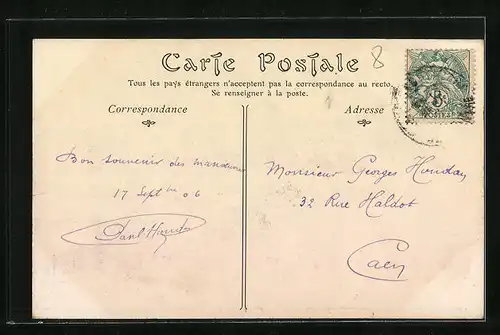 Carte Postale
8
Tous les pays étrangers n'acceptent pas la correspondance au recto.
Se renseigner à la poste.
Correspondance
Adresse
Bon souvenir des manœuvres
17 Septbre 06
Paul
Monsieur Georges
32 Rue Haldot
Caen
POSTES